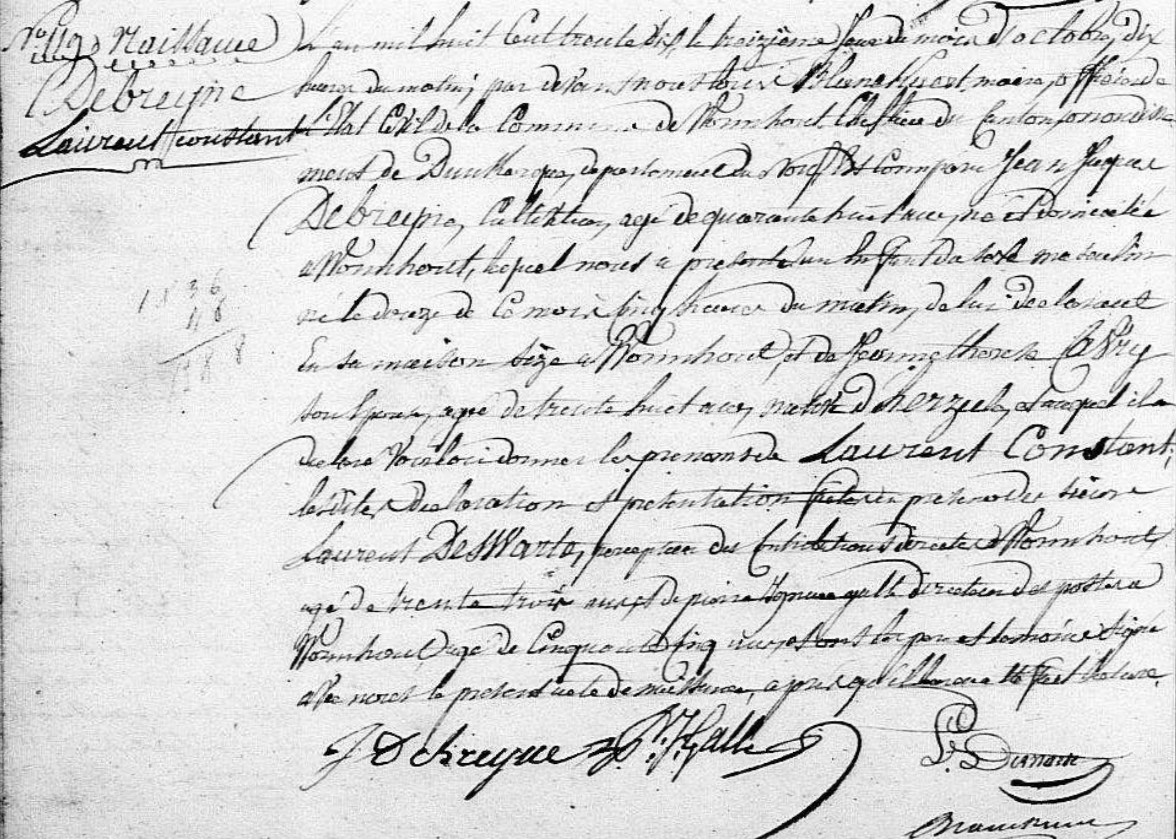 No. 119 Naissance
Debreyne
Laurent Constant
L'an mil huit cent trente six, le treizième jour du mois d'octobre, dix
heures du matin, par devant nous Louis maire, officier de
l'Etat Civil de la Commune de Wormhout, Chef lieu du Canton, arrondisse
ment de Dunkerque, departement du Nord, Est Comparu Jean Jacques
Debreyne, Cultivateur, agé de quarante huit ans, né et domicilié
a Wormhout, lequel nous a presenté un Enfant du sexe masculin
né le douze de Ce mois Cinq heures du matin, de lui declarant
En sa maison size a Wormhout, et de Jeanne therese
son Epouse, agée de trente huit ans, native d'herzeele, et auquel il a
declaré Vouloir donner les prenoms de Laurent Constant,
lesdites declaration et presentation faites en presence des sieurs
Laurent Deswarte, percepteur des Contributions directes a Wormhout,
agé de trente trois ans, et de pierre Ignace galle directeur des postes a
Wormhout agé de Cinquante Cinq ans, et ont les pere et temoins signé
avec nous le present acte de naissance, après qu'il leur en a eté fait lecture.
1836
48
88
J Debreyne P. J. Galle